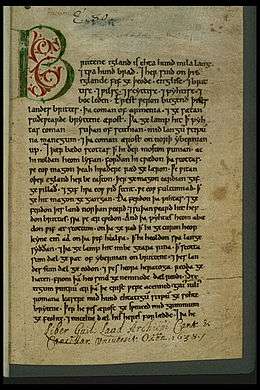 Brittene igland is ehta hund mila lang.
⁊ twa hund brad. ⁊ her sind on þis
iglande fif geþeode. englisc. ⁊ brit
tisc. ⁊ wilsc. ⁊ scyttisc. ⁊ pyhtisc. ⁊
boc leden. Erest weron bugend þises
landes brittes. þa coman of armenia. ⁊ gesætan
suðewearde bryttene ærost. Þa gelamp hit þ pyh
tas coman suþan of scithian. mid langum scipum
na manegum. ⁊ þa coman ærost on norþ ybernian
up. ⁊ þær bædo scottas þ hi ðer moston wunian. ac
hi noldan heom lyfan. forðan hi cwædon þa scottas.
we eow magon þeah hwaðere ræd gelæron. We witan
oþer egland her be easton. þer ge magon eardian gif
ge willað. ⁊ gif hwa eow wiðstent. we eow fultumiað. þ
ge hit magon gegangan. Ða ferdon þa pihtas. ⁊ ge
ferdon þis land norþanweard. ⁊ suþanweard hit hef
don brittas. swa we ær cwedon. And þa pyhtas heom abæ
don wif æt scottum. on þa gerad þ hi gecuron heora
kyne cin aa on þa wif healfa. þ hi heoldon swa lange
syððan. ⁊ þa gelamp hit imbe geara rina. þ scotta
sum dæl gewat of ybernian on brittene. ⁊ þes lan
des sum dæl geeodon. ⁊ wes heora heratoga reoda ge
haten. from þam heo sind genemnode dælreodi. Six
tigum wintrum ær þam þe crist were acenned. gaius iulius
romana kasere mid hund ehtatigum scipum gesohte
brytene. Þer he wes ærost geswenced mid grimmum
gefeohte. ⁊ micelne dæl his heres forlædde. ⁊ þa he
Liber Guil. Laud Archiepi Cant. &
Cancellar. Universit. Oxon. 1638.